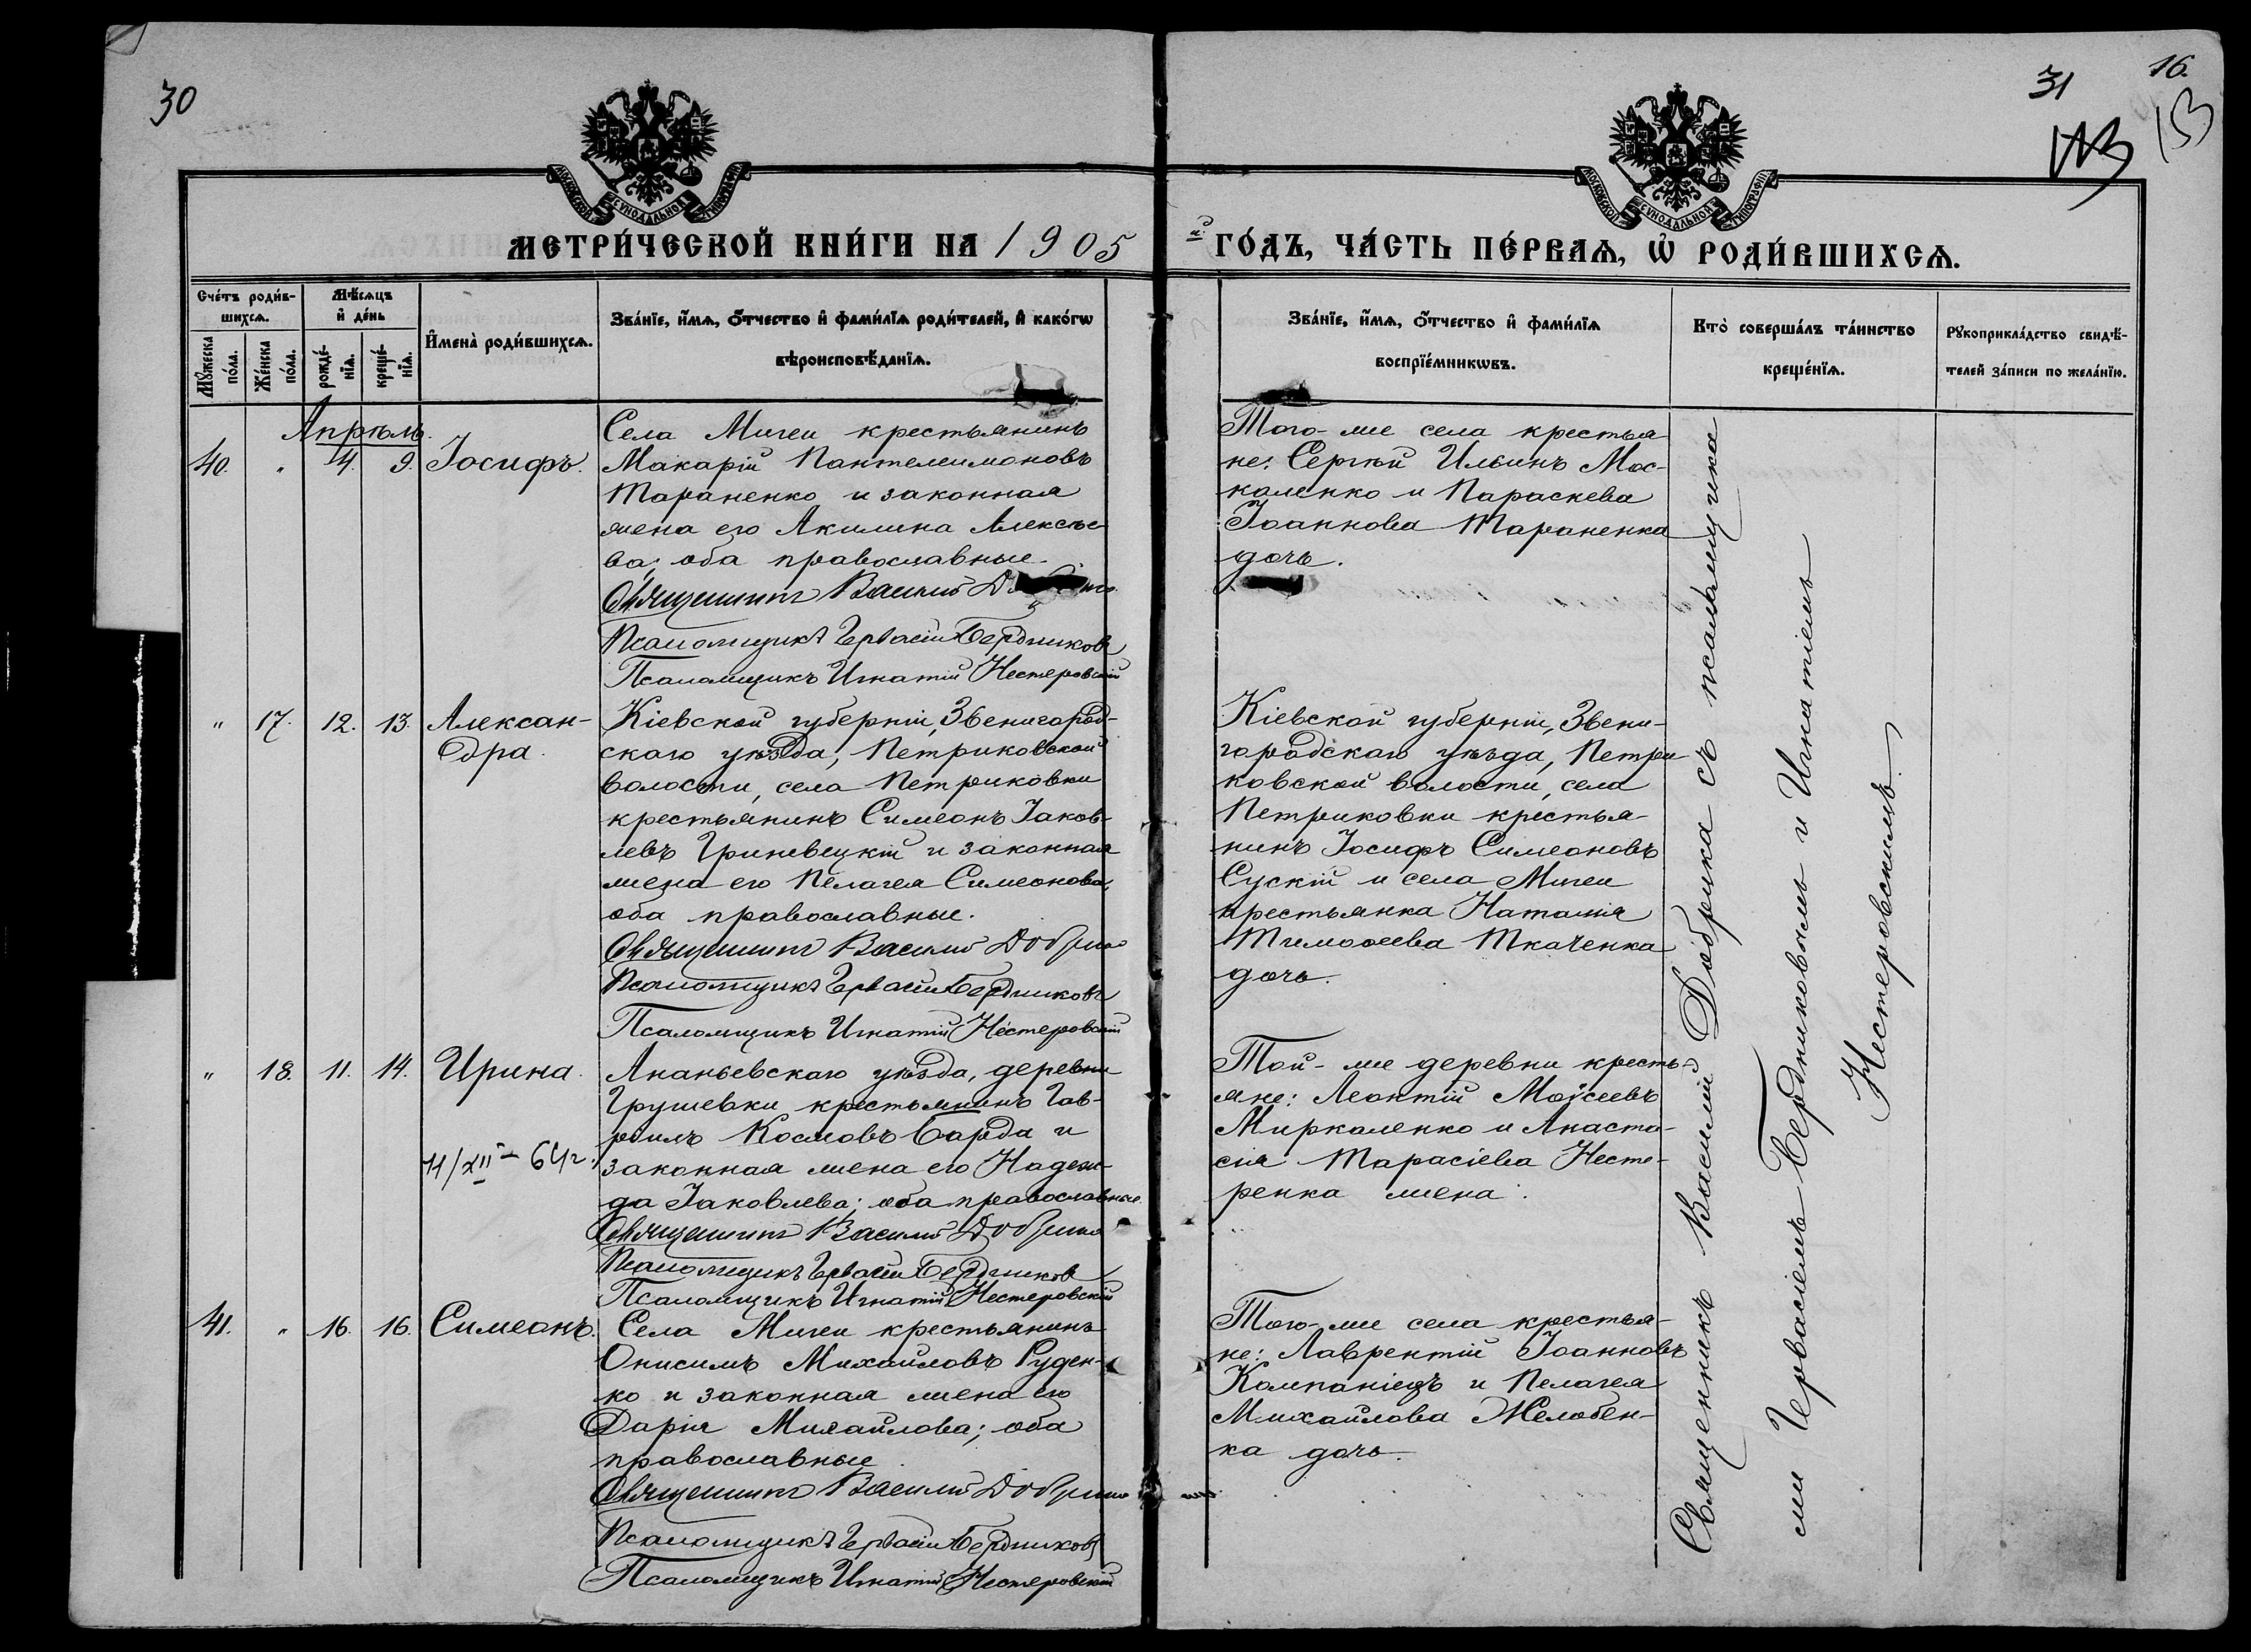 30
31
16.
153
МОСКОВСКОЙ СѴНОДАЛЬНОЙ ТИПОГРАФІИ
МОСКОВСКОЙ СѴНОДАЛЬНОЙ ТИПОГРАФІИ
МЕТРИ́ЧЕСКОЙ КНИ́ГИ НА 1905
й ГО́ДЪ, ЧА́СТЬ ПЕ́РВАѦ, Ѡ҆ РОДИ́ВШИХСѦ.
Сче́тъ роди́в-
шихсѧ.
Мꙋ́жеска по́ла.
Же́нска по́ла.
Мѣ́сѧцъ
и҆ де́нь
рожде́-нїѧ.
креще́-нїѧ.
И҆мена̀ роди́вшихсѧ.
Зва́нїе, и҆́мѧ, ѻ҆́тчество и҆ фами́лїѧ роди́телей, и҆ како́гѡ
вѣроисповѣ́данїѧ.
Зва́нїе, и҆́мѧ, ѻ҆́тчество и҆ фами́лїѧ
воспрїе́мникѡвъ.
Кто̀ соверша́лъ та́инство
креще́нїѧ.
Рꙋкоприкла́дство свидѣ́-
телей за́писи по жела́нїю.
Апрѣль.
40. " 4. 9. Іосифъ.
Села Мигеи крестьянинъ
Макарій Пантелеимоновъ
Тараненко и законная
жена его Акилина Алексѣе-
ва; оба православные.
Священникъ Василій
Псаломщикъ Гервасій Бердниковъ
Псаломщикъ Игнатій Нестеровскій
Того-же села крестья-
не: Сергѣй Ильинъ Мос-
каленко и Параскева
Іоаннова Тараненка
дочь.
" 17. 12. 13. Алексан-
дра.
Кіевской губерніи, Звенигород-
скаго уѣзда, Петриковской
волости, села Петриковки
крестьянинъ Симеонъ Іаков-
левъ Гриневецкій и законная
жена его Пелагея Симеонова,
оба православные.
Священникъ Василій Добрика
Псаломщикъ Гервасій Бердниковъ
Псаломщикъ Игнатій Нестеровскій
Кіевской губерніи, Звени-
городскаго уѣзда, Петри
ковской волости, села
Петриковки крестья-
нинъ Іосифъ Симеоновъ
Сускій и села Мигеи
крестьянка Наталія
Тимоѳеева Ткаченка
дочь.
" 18. 11. 14. Ирина.
11/XII - 64г.
Ананьевскаго уѣзда, деревни
Грушевки крестьянинъ Гав-
ріилъ Космовъ Барда и
законная жена его Надеж-
да Іаковлева; оба православные.
Священникъ Василій Добрика
Псаломщикъ Гервасій Бердниковъ
Псаломщикъ Игнатій Нестеровскій
Той-же деревни кресть-
яне: Леонтій Моѵсеевъ
Миркаленко и Анаста-
сія Тарасіева Несте-
ренка жена.
41. " 16. 16. Симеонъ.
Села Мигеи крестьянинъ
Онисимъ Михайловъ Руден-
ко и законная жена его
Дарія Михайлова; оба
православные
Священникъ Василій Добрика
Псаломщикъ Гервасій Бердниковъ
Псаломщикъ Игнатій Нестеровскій
Того-же села крестья-
не: Лаврентій Іоанновъ
Компаніецъ и Пелагея
Михайлова Желобен-
ка дочь.
Священникъ Василій Добрика съ псаломщика
ми Гервасіемъ Бердниковымъ и Игнатіемъ
Нестеровскимъ.